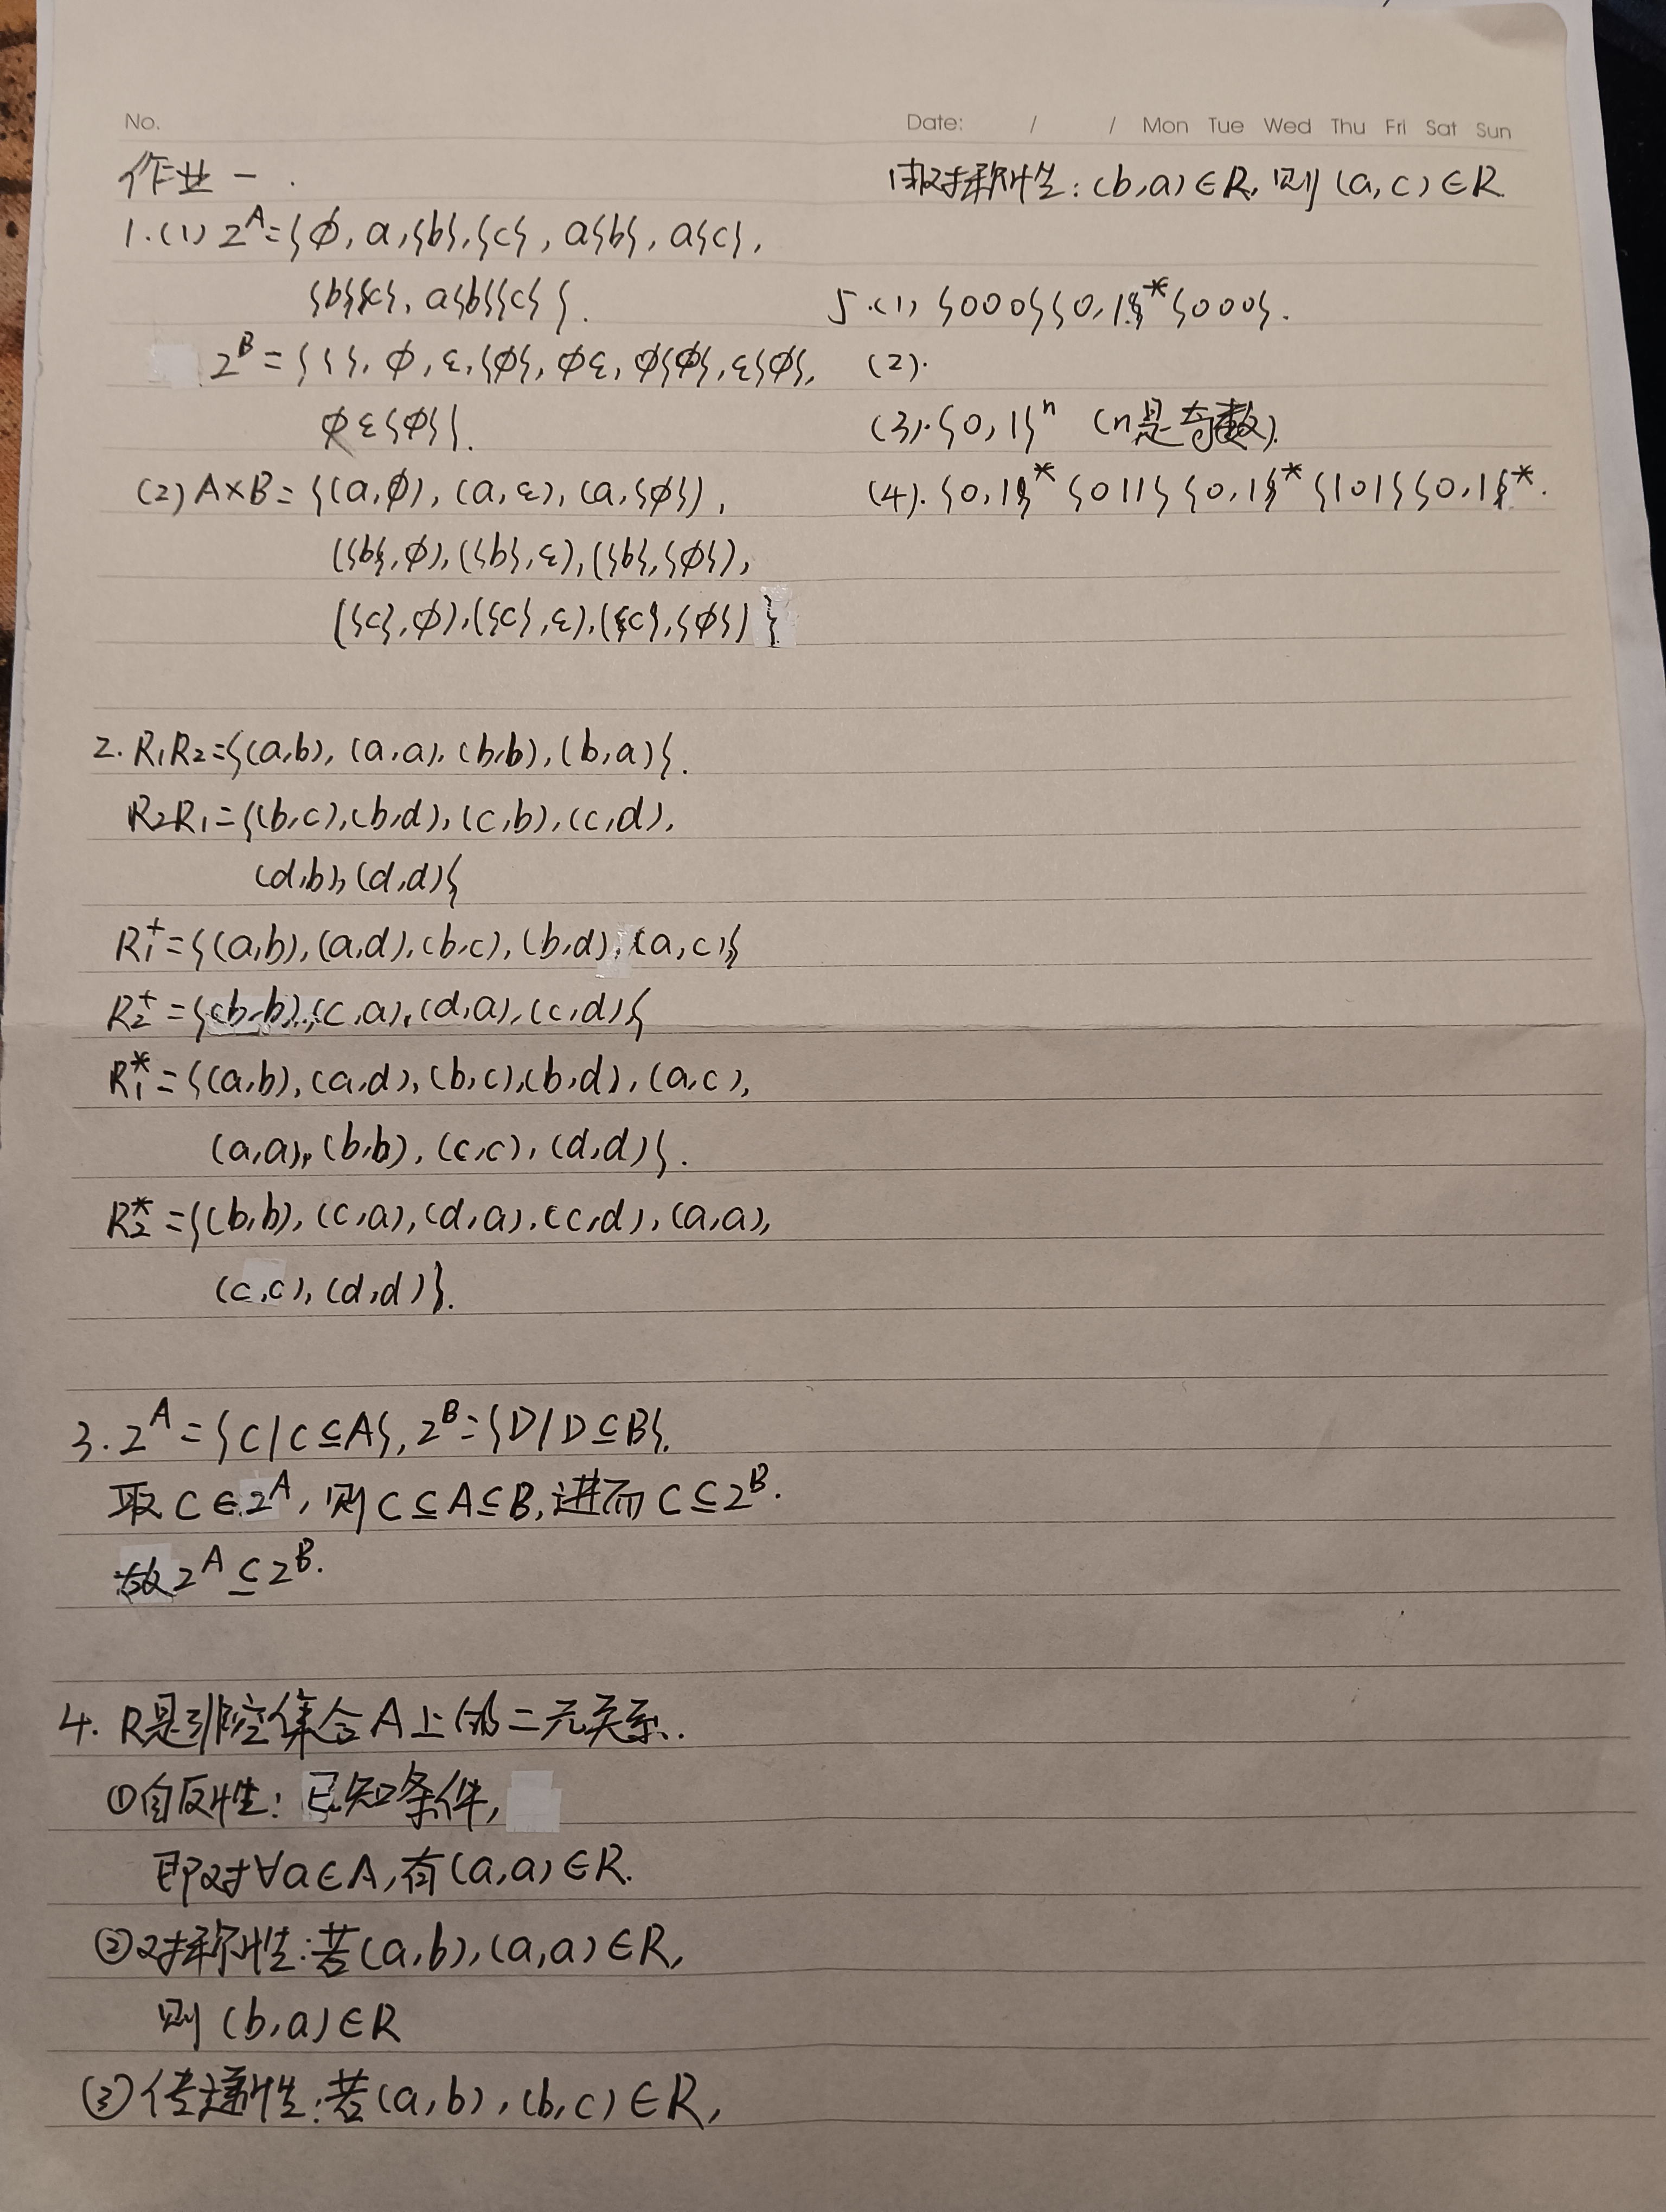 No.
Date: / / Mon Tue Wed Thu Fri Sat Sun
作业一.
1.(1) 2^A={∅, a,{b},{c}, a{b}, a{c},
{b}{c}, a{b}{c}}.
2^B={{}, ∅, ε,{∅}, ∅ε, ∅{∅}, ε{∅},
∅ε{∅}}.
(2) A×B={(a,∅), (a,ε), (a,{∅}),
({b},∅),({b},ε),({b},{∅}),
({c},∅),({c},ε),({c},{∅})}
2. R₁R₂={(a,b), (a,a), (b,b), (b,a)}.
R₂R₁={(b,c),(b,d),(c,b),(c,d),
(d,b),(d,d)}
R₁⁺={(a,b),(a,d),(b,c),(b,d),(a,c)}
R₂⁺={(b,b),(c,a),(d,a),(c,d)}
R₁*={(a,b),(a,d),(b,c),(b,d),(a,c),
(a,a),(b,b),(c,c),(d,d)}.
R₂*={(b,b),(c,a),(d,a),(c,d),(a,a),
(c,c),(d,d)}.
3. 2^A={C|C⊆A}, 2^B={D|D⊆B}.
取C∈2^A, 则C⊆A⊆B, 进而C⊆2^B.
故2^A⊆2^B.
4. R是非空集合A上的二元关系.
①自反性: 已知条件,
即对∀a∈A,有(a,a)∈R.
②对称性:若(a,b),(a,a)∈R,
则(b,a)∈R
③传递性:若(a,b),(b,c)∈R,
由对称性:(b,a)∈R, 则(a,c)∈R
5.(1) {000}{0,1}*{000}.
(2).
(3).{0,1}^n (n是奇数).
(4). {0,1}*{011}{0,1}*{101}{0,1}*.